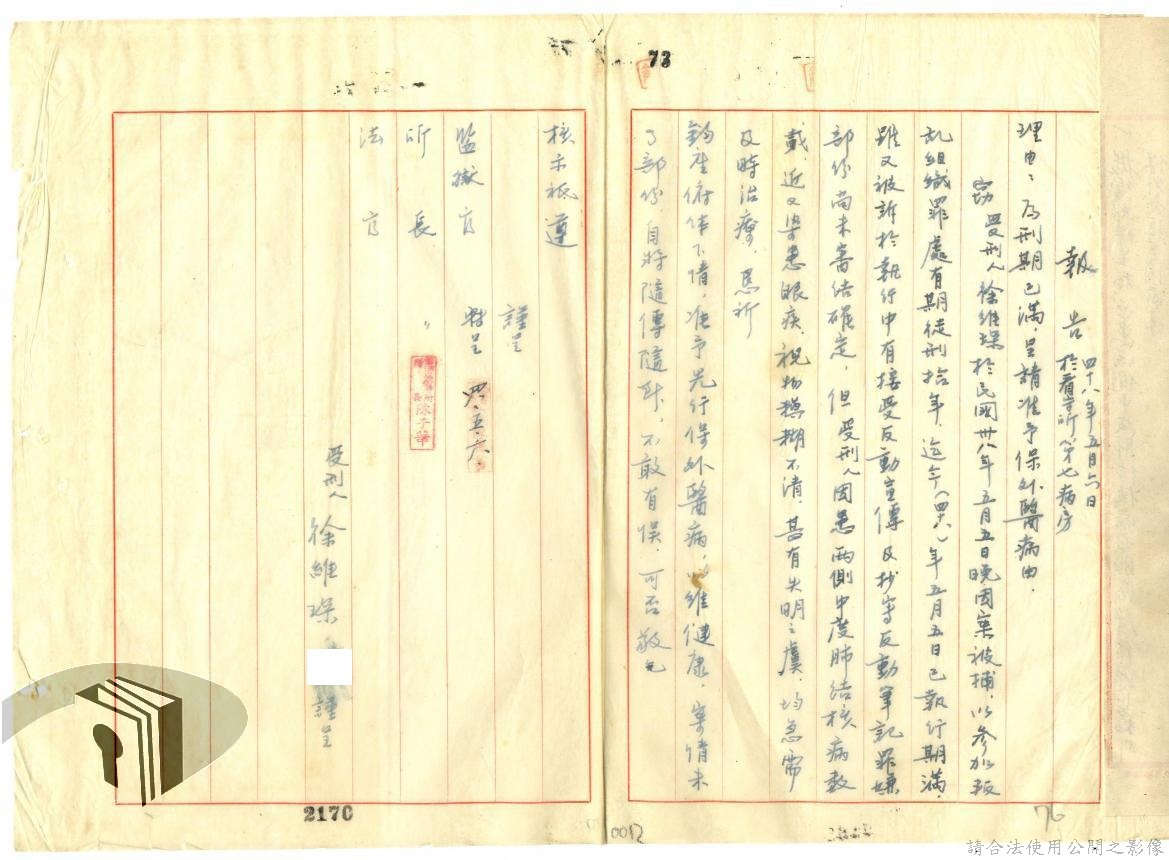 73
報告
四十八年五月六日
於看守所第七病房
理由：為刑期已滿，呈請准予保外醫病由。
竊受刑人徐維琛於民國卅八年五月五日晚因案被捕，以參加叛
乱組織罪處有期徒刑拾年，迄今（四八）年五月五日已執行期滿，
雖又被訴於執行中有接受反動宣傳及抄寫反動筆記罪嫌
部份尚未審結確定，但受刑人因患兩側中度肺結核病数
載，近又染患眼疾，視物模糊不清，甚有失明之虞，均急需
及時治療，恳祈
鈞座俯体下情，准予先行保外醫病，以維健康，案情未
了部份，自將隨傳隨到，不敢有悞，可否敬乞
核示祗遵
謹呈
監獄官
轉呈
四、五、六
所長
〃
陳子華
法官
受刑人 徐維琛 謹呈
2170
0012
76
請合法使用公開之影像